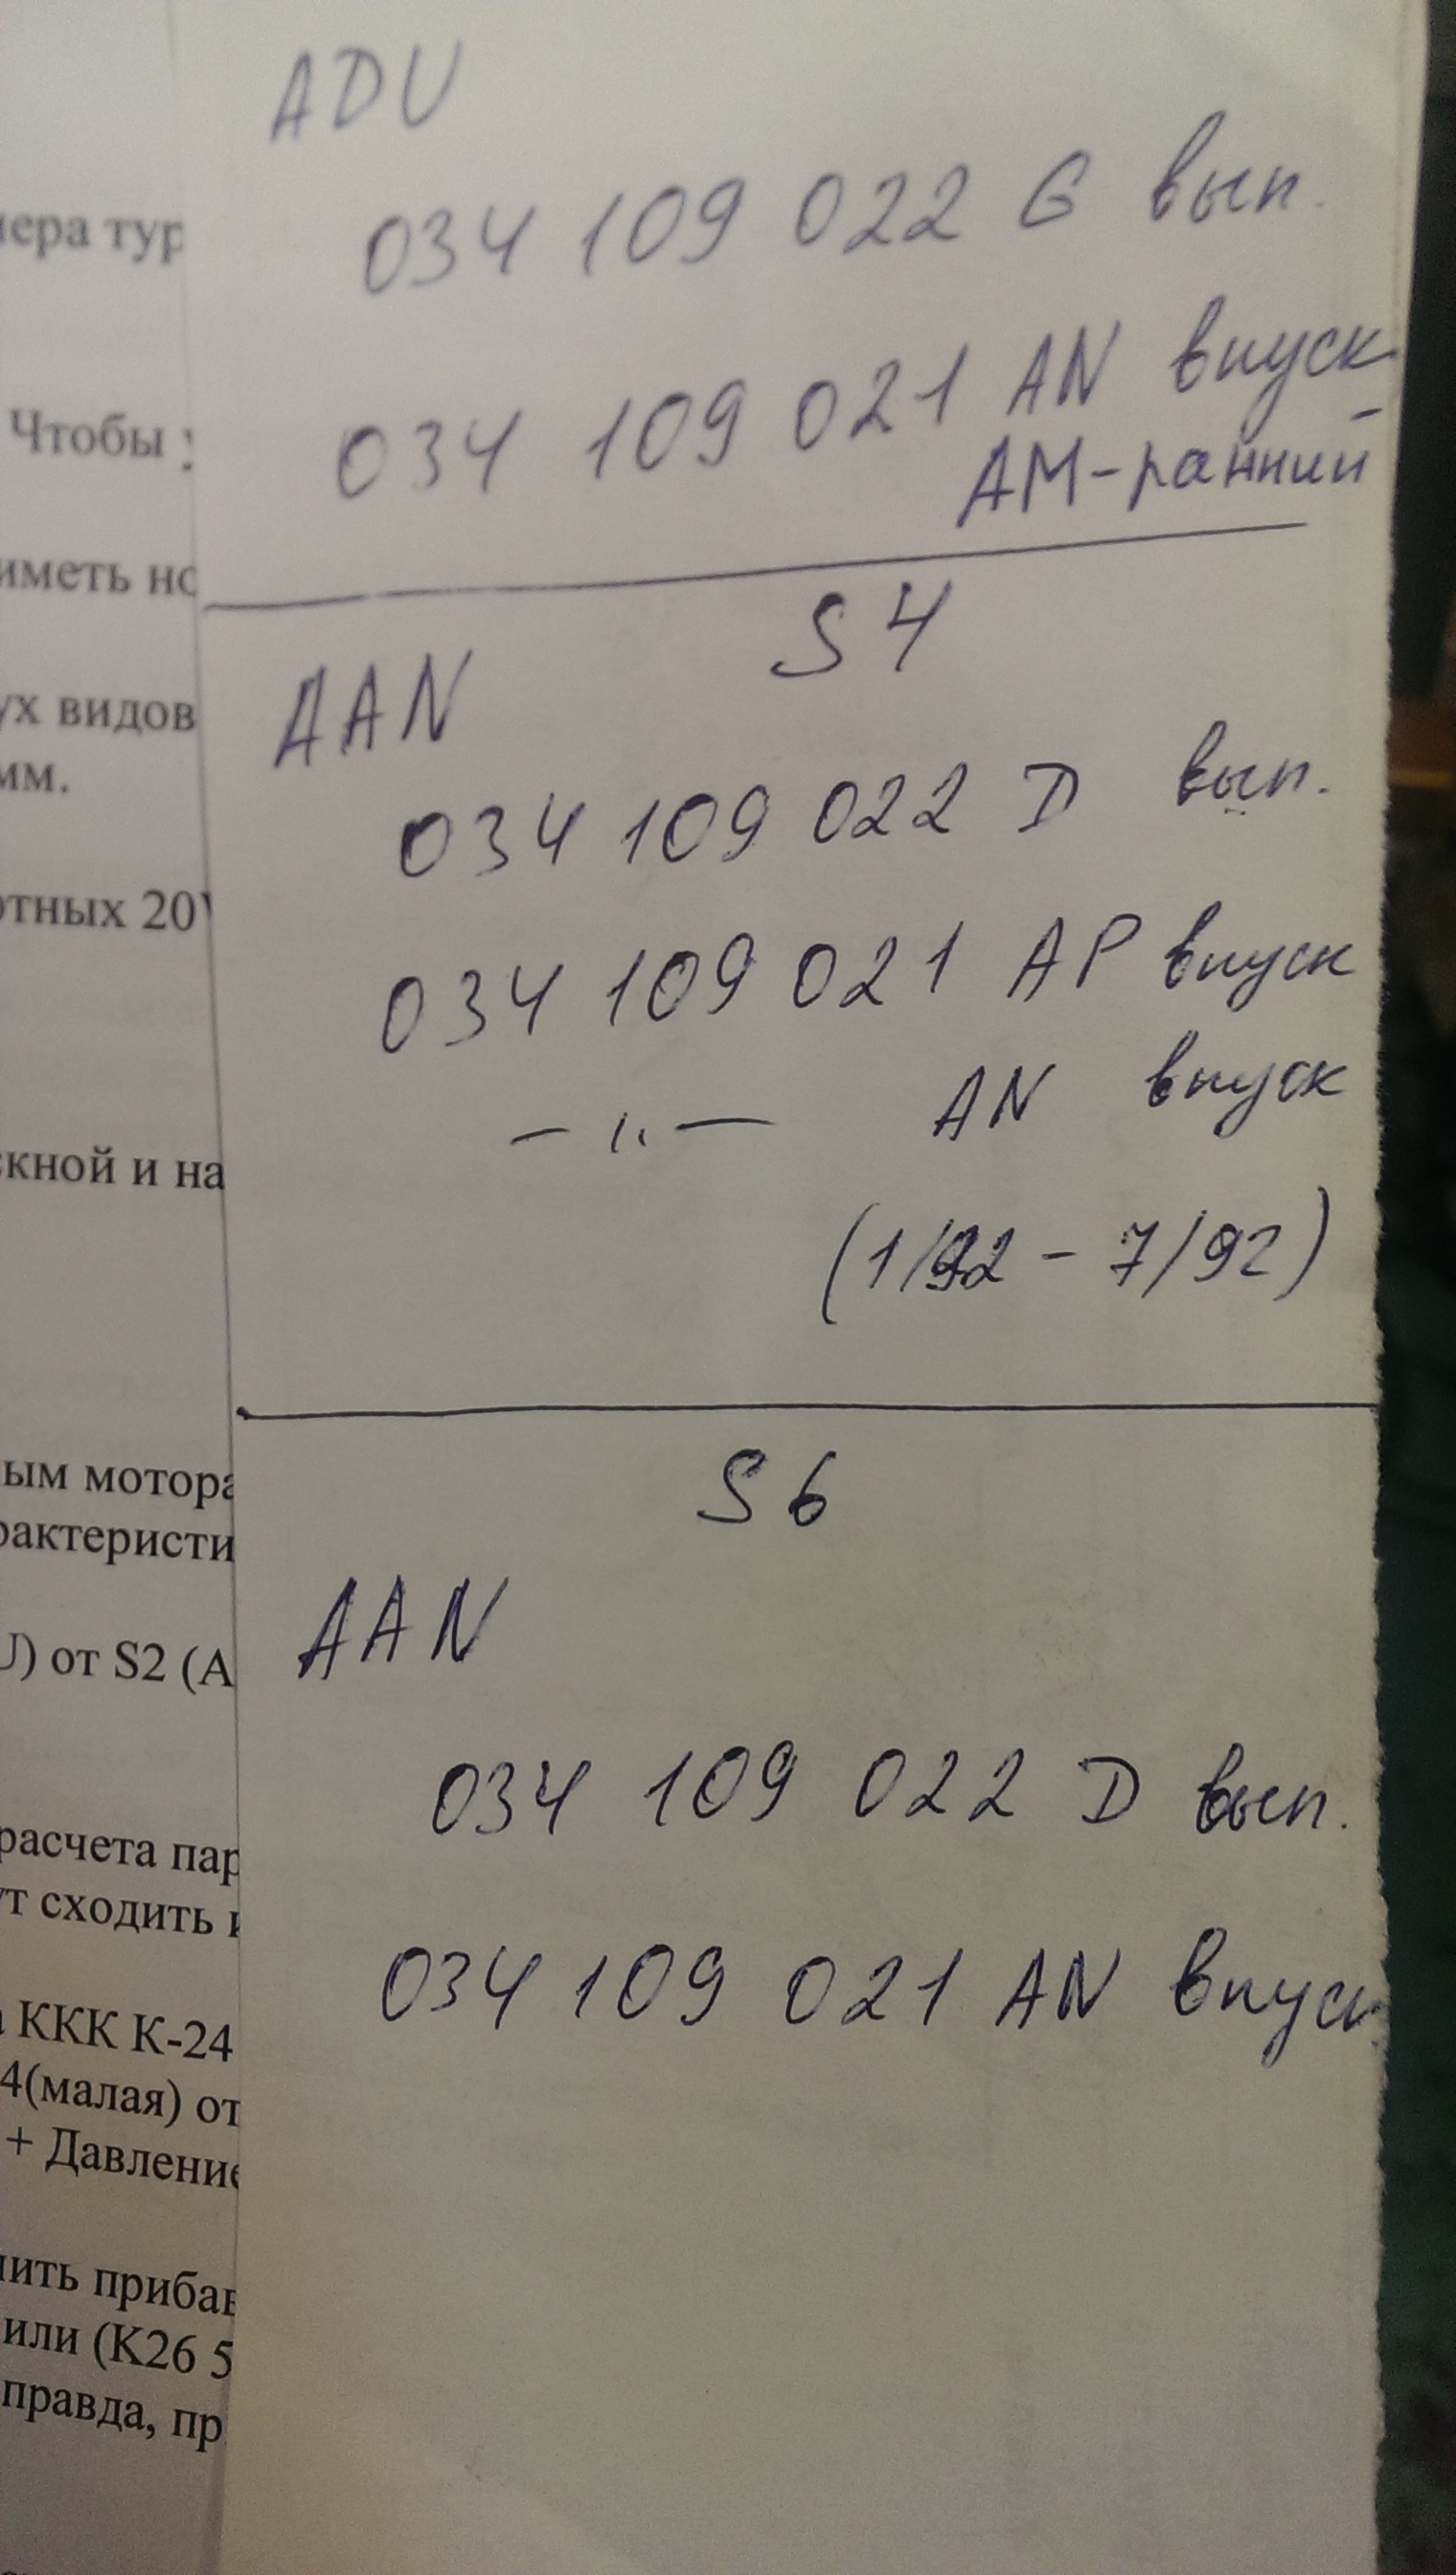 ADU
034 109 022 G вып.
034 109 021 AN впуск
AM-ранний
S4
AAN
034 109 022 D вып.
034 109 021 AP впуск
— 〃 — AN впуск
(1/92 - 7/92)
S6
AAN
034 109 022 D вып.
034 109 021 AN впуск
мера тур
Чтобы у
иметь но
ух видов
мм.
отных 20V
скной и на
ым мотора
рактеристи
U) от S2 (A
расчета пар
ут сходить и
KKK K-24
4(малая) от
+ Давление
нить прибав
или (K26 5
правда, пр